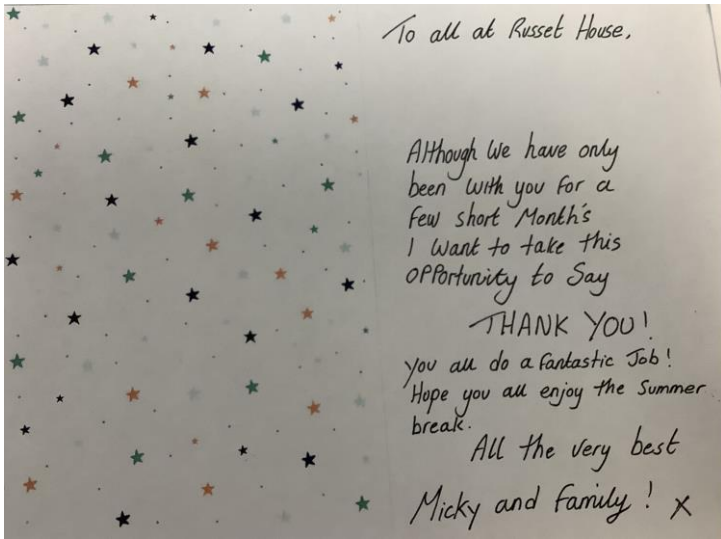 To all at Russet House,
Although We have only
been with you for a
few short Month's
I want to take this
opportunity to Say
THANK YOU!
You all do a fantastic Job!
Hope you all enjoy the Summer
break.
All the very best
Micky and family! X